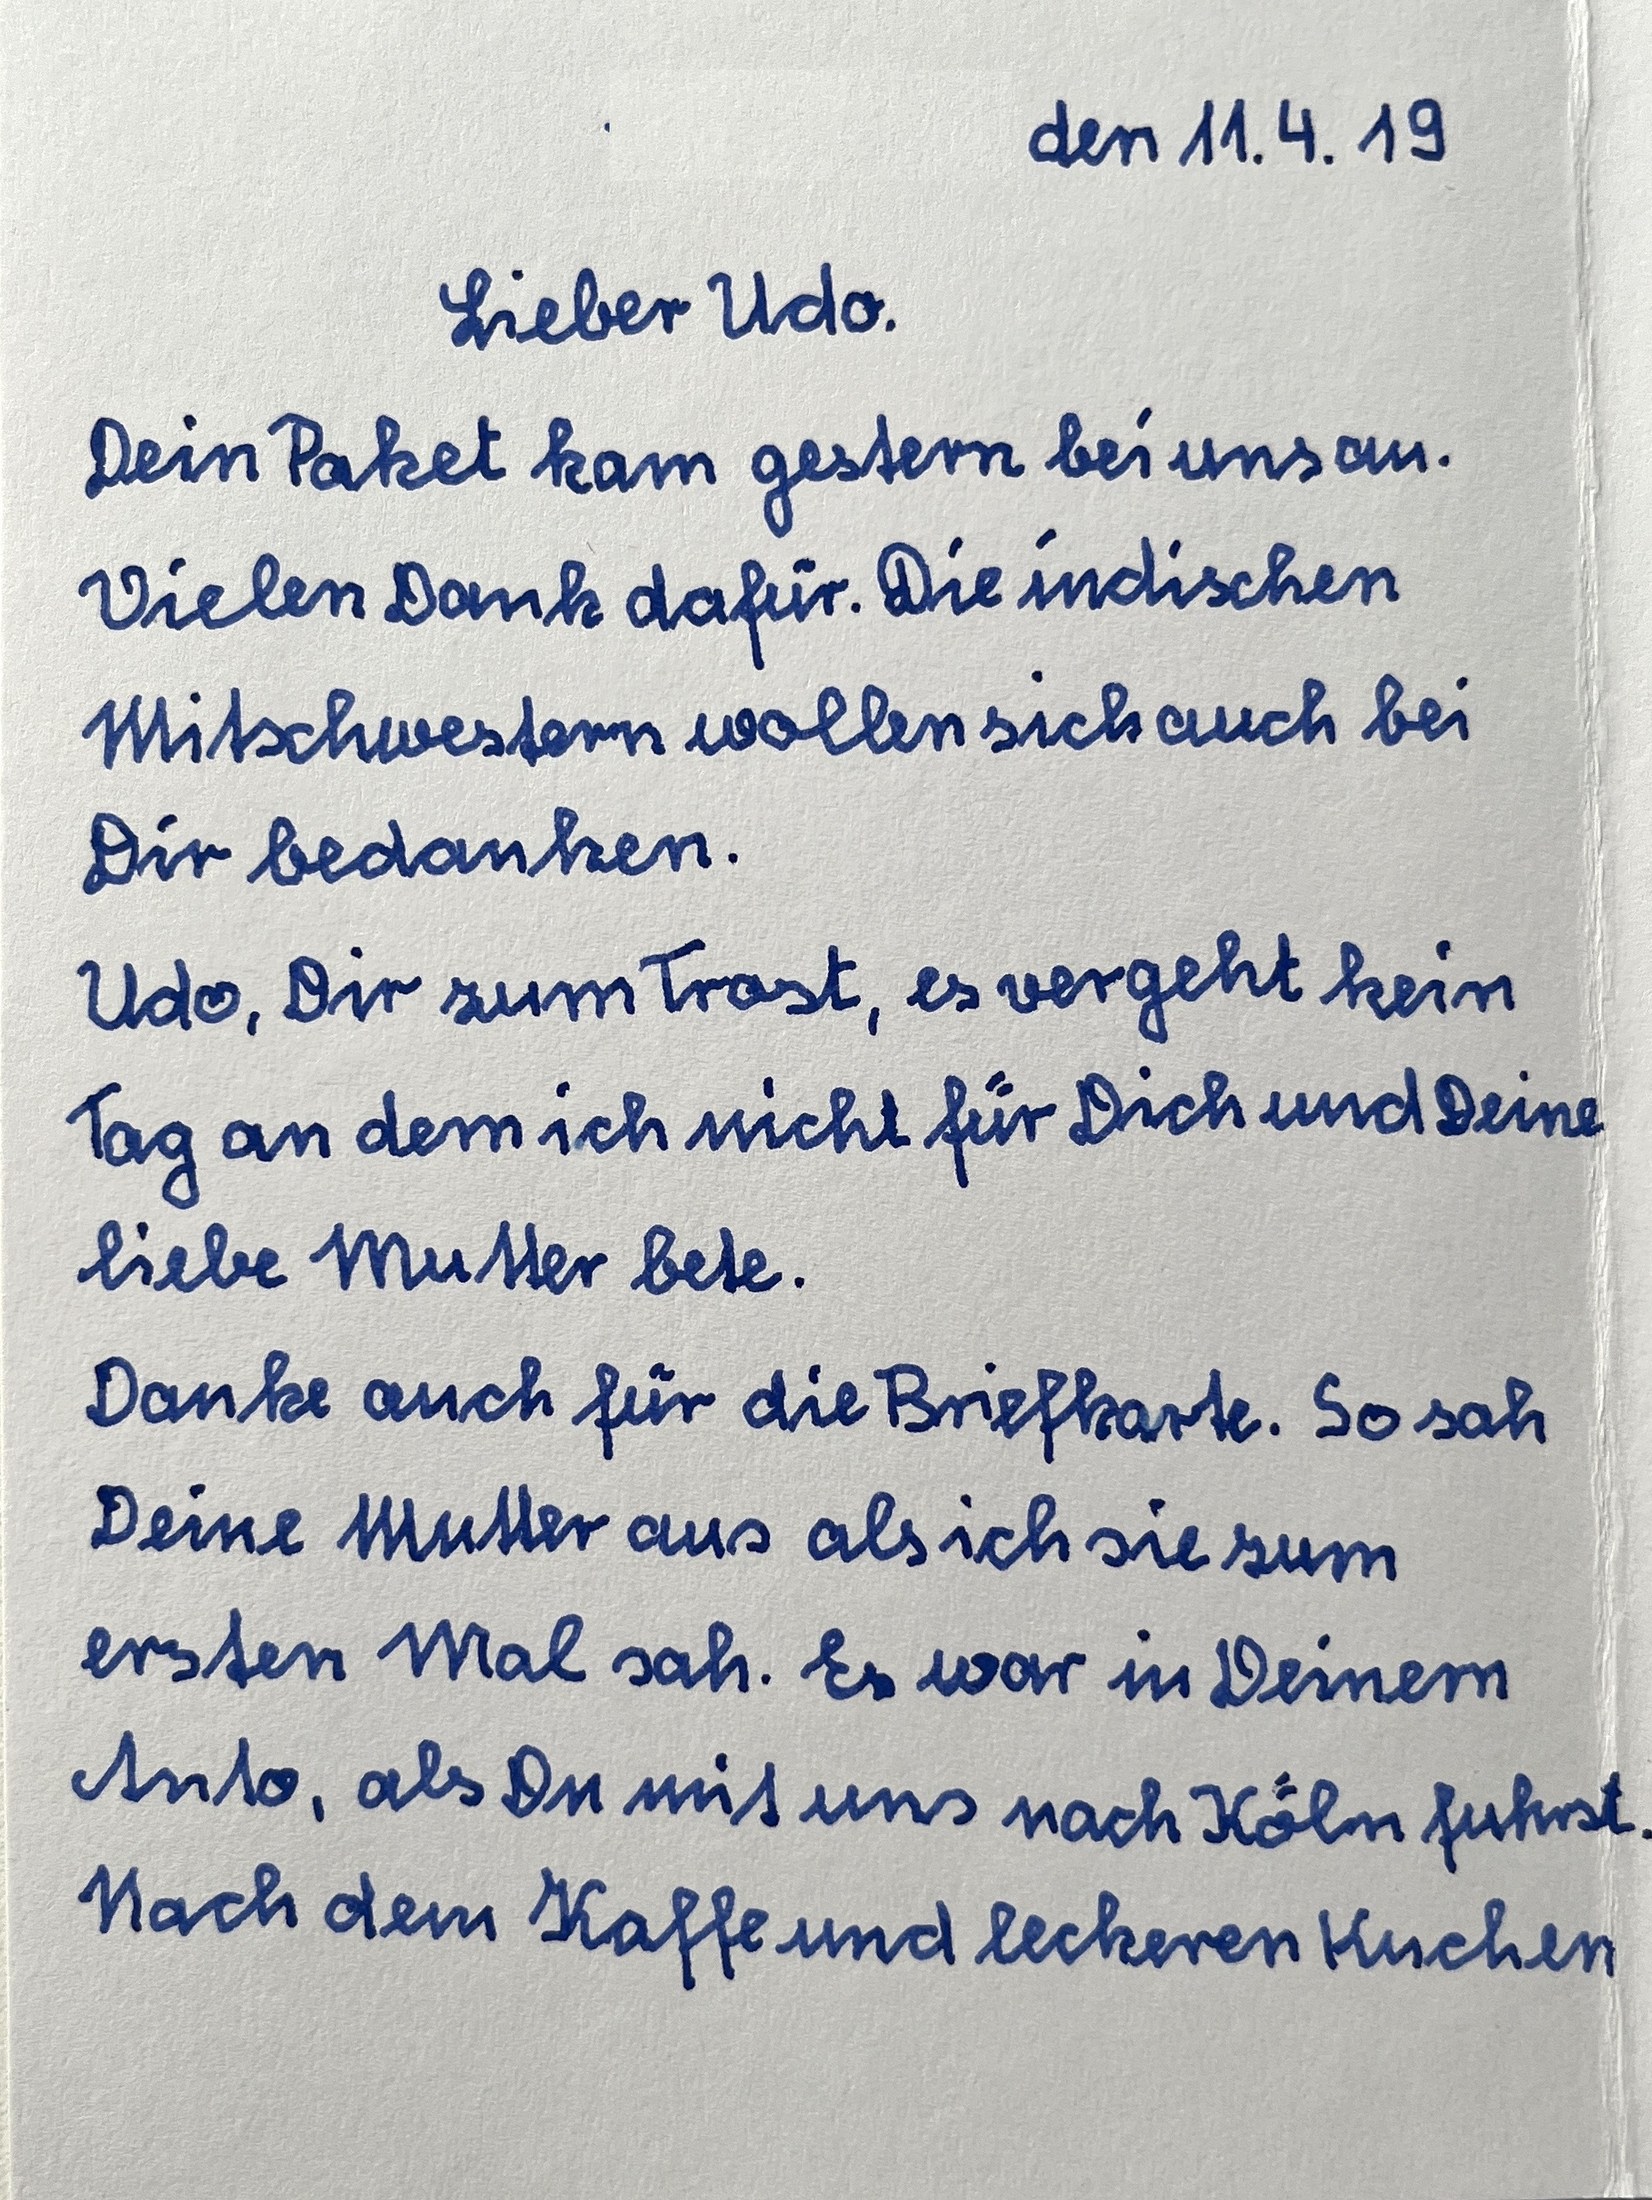 den 11.4.19
Lieber Udo.
Dein Paket kam gestern bei uns an.
Vielen Dank dafür. Die indischen
Mitschwestern wollen sich auch bei
Dir bedanken.
Udo, Dir zum Trost, es vergeht kein
Tag an dem ich nicht für Dich und Deine
liebe Mutter bete.
Danke auch für die Briefkarte. So sah
Deine Mutter aus als ich sie zum
ersten Mal sah. Es war in Deinem
Auto, als Du mit uns nach Köln fuhrst.
Nach dem Kaffe und leckeren Kuchen